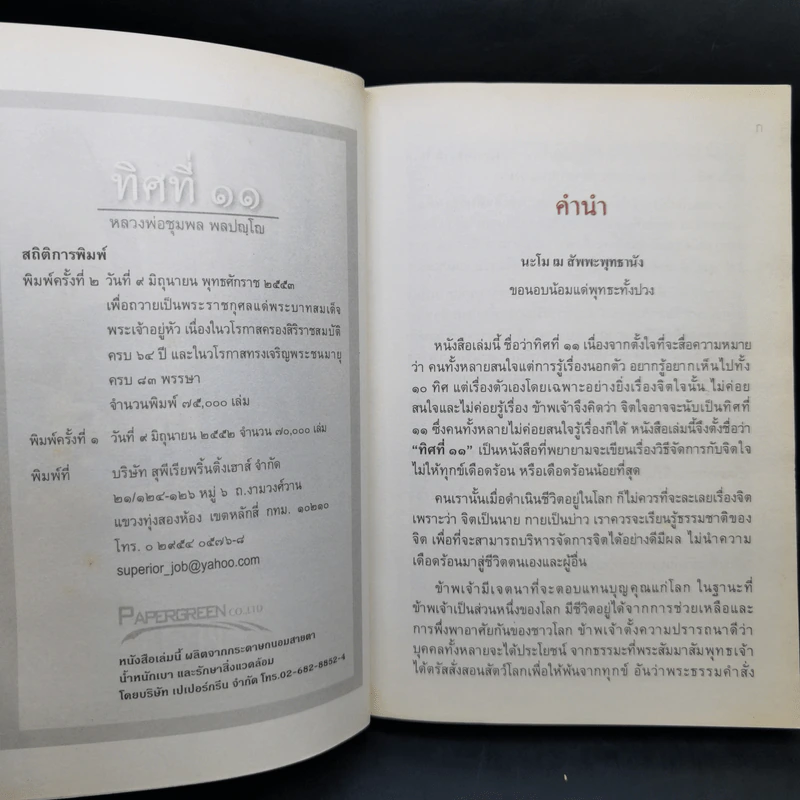 ทิศที่ ๑๑
หลวงพ่อชุมพล พลปญฺโญ
สถิติการพิมพ์
พิมพ์ครั้งที่ ๒ วันที่ ๙ มิถุนายน พุทธศักราช ๒๕๕๓
เพื่อถวายเป็นพระราชกุศลแด่พระบาทสมเด็จ
พระเจ้าอยู่หัว เนื่องในวโรกาสครองสิริราชสมบัติ
ครบ ๖๔ ปี และในวโรกาสทรงเจริญพระชนมายุ
ครบ ๘๓ พรรษา
จำนวนพิมพ์ ๗๕,๐๐๐ เล่ม
พิมพ์ครั้งที่ ๑ วันที่ ๙ มิถุนายน ๒๕๕๒ จำนวน ๗๐,๐๐๐ เล่ม
พิมพ์ที่ บริษัท สุพีเรียพริ้นติ้งเฮาส์ จำกัด
๒๑/๑๒๔-๑๒๖ หมู่ ๖ ถ.งามวงศ์วาน
แขวงทุ่งสองห้อง เขตหลักสี่ กทม. ๑๐๒๑๐
โทร. ๐ ๒๙๕๔ ๐๕๗๖-๘
superior_job@yahoo.com
PAPERGREEN CO.,LTD
หนังสือเล่มนี้ ผลิตจากกระดาษถนอมสายตา
น้ำหนักเบา และรักษาสิ่งแวดล้อม
โดยบริษัท เปเปอร์กรีน จำกัด โทร.02-682-8852-4
คำนำ
นะโม เม สัพพะพุทธานัง
ขอนอบน้อมแด่พุทธะทั้งปวง
หนังสือเล่มนี้ ชื่อว่าทิศที่ ๑๑ เนื่องจากตั้งใจที่จะสื่อความหมาย
ว่า คนทั้งหลายสนใจแต่การรู้เรื่องนอกตัว อยากรู้อยากเห็นไปทั้ง
๑๐ ทิศ แต่เรื่องตัวเองโดยเฉพาะอย่างยิ่งเรื่องจิตใจนั้น ไม่ค่อย
สนใจและไม่ค่อยรู้เรื่อง ข้าพเจ้าจึงคิดว่า จิตใจอาจจะนับเป็นทิศที่
๑๑ ซึ่งคนทั้งหลายไม่ค่อยสนใจรู้เรื่องก็ได้ หนังสือเล่มนี้จึงตั้งชื่อว่า
“ทิศที่ ๑๑” เป็นหนังสือที่พยายามจะเขียนเรื่องวิธีจัดการกับจิตใจ
ไม่ให้ทุกข์เดือดร้อน หรือเดือดร้อนน้อยที่สุด
คนเรานั้นเมื่อดำเนินชีวิตอยู่ในโลก ก็ไม่ควรที่จะละเลยเรื่องจิต
เพราะว่า จิตเป็นนาย กายเป็นบ่าว เราควรจะเรียนรู้ธรรมชาติของ
จิต เพื่อที่จะสามารถบริหารจัดการจิตได้อย่างดีมีผล ไม่นำความ
เดือดร้อนมาสู่ชีวิตตนเองและผู้อื่น
ข้าพเจ้ามีเจตนาที่จะตอบแทนบุญคุณแก่โลก ในฐานะที่
ข้าพเจ้าเป็นส่วนหนึ่งของโลก มีชีวิตอยู่ได้จากการช่วยเหลือและ
การพึ่งพาอาศัยกันของชาวโลก ข้าพเจ้าตั้งความปรารถนาดีว่า
บุคคลทั้งหลายจะได้ประโยชน์ จากธรรมะที่พระสัมมาสัมพุทธเจ้า
ได้ตรัสสั่งสอนสัตว์โลกเพื่อให้พ้นจากทุกข์ อันว่าพระธรรมคำสั่ง